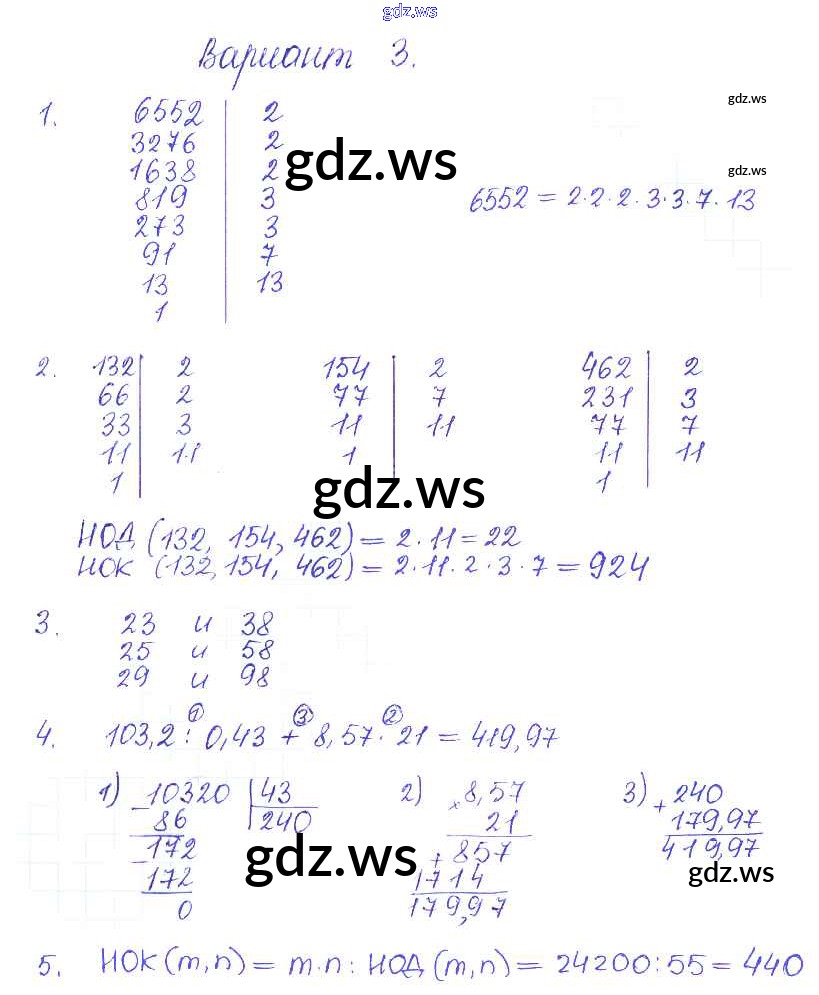 gdz.ws
Вариант 3.
1. 6552 | 2
3276 | 2
1638 | 2
819 | 3
273 | 3
91 | 7
13 | 13
1
6552 = 2·2·2·3·3·7·13
gdz.ws
gdz.ws
gdz.ws
2. 132 | 2 154 | 2 462 | 2
66 | 2 77 | 7 231 | 3
33 | 3 11 | 11 77 | 7
11 | 11 1 11 | 11
1 1
gdz.ws
НОД (132, 154, 462) = 2·11 = 22
НОК (132, 154, 462) = 2·11·2·3·7 = 924
3. 23 и 38
25 и 58
29 и 98
① ③ ②
4. 103,2 : 0,43 + 8,57 · 21 = 419,97
1) 10320 | 43 2) × 8,57 3) + 240
− 86 240 21 179,97
− 172 + 857 419,97
172 1714
0 179,97
gdz.ws
gdz.ws
5. НОК (m, n) = m·n : НОД (m, n) = 24200 : 55 = 440